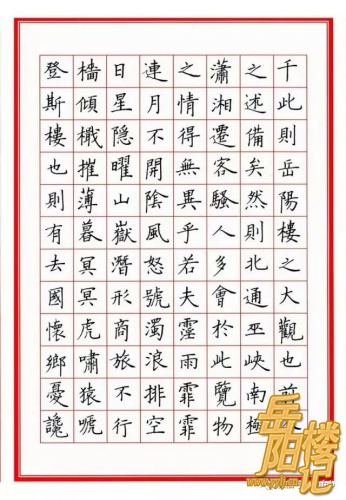 千此則岳陽樓之大觀也前
之述備矣然則北通巫峽南極
瀟湘遷客騷人多會於此覽物
之情得無異乎若夫霪雨霏霏
連月不開陰風怒號濁浪排空
日星隐曜山嶽潛形商旅不行
檣傾檝摧薄暮冥冥虎嘯猿嗁
登斯樓也則有去國懷鄉憂讒
岳阳楼记